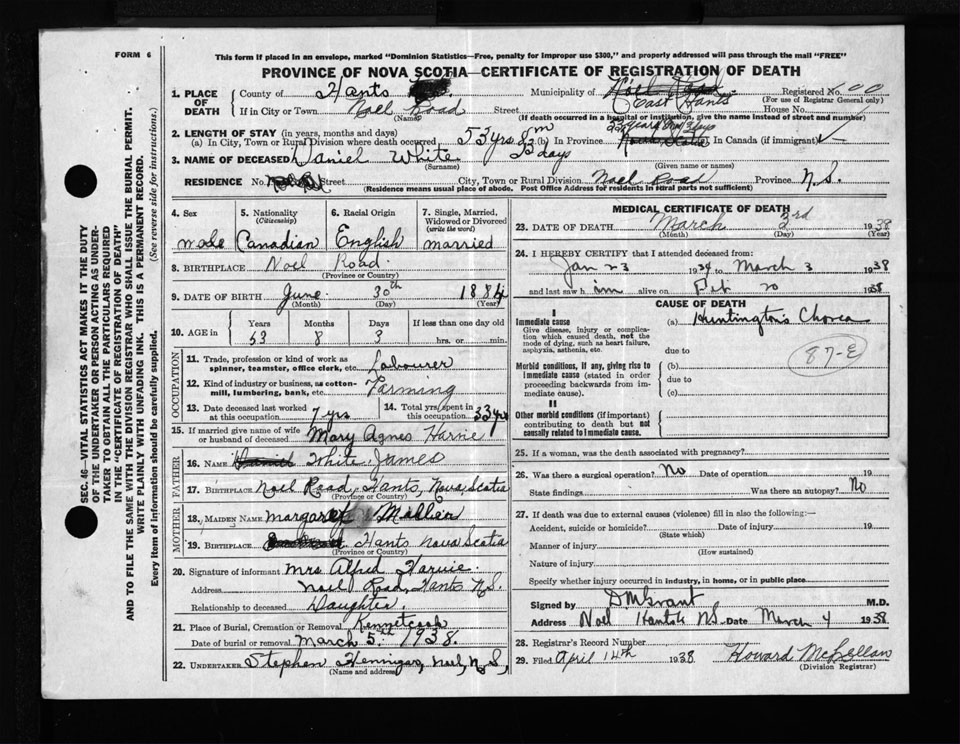 FORM 6
This form if placed in an envelope, marked "Dominion Statistics—Free, penalty for improper use $300," and properly addressed will pass through the mail "FREE"
PROVINCE OF NOVA SCOTIA—CERTIFICATE OF REGISTRATION OF DEATH
1. PLACE OF DEATH
County of Hants
Municipality of East Hants
Registered No.
(For use of Registrar General only)
If in City or Town Noel Road Street House No.
(Name)
(If death occurred in a hospital or institution, give the name instead of street and number)
2. LENGTH OF STAY (in years, months and days)
(a) In City, Town or Rural Division where death occurred 53 yrs 8 m 3 days (b) In Province In Canada (if immigrant)
3. NAME OF DECEASED Daniel White
(Surname) (Given name or names)
RESIDENCE No. Street City, Town or Rural Division Noel Road Province N.S.
(Residence means usual place of abode. Post Office Address for residents in rural parts not sufficient)
4. Sex
male
5. Nationality
(Citizenship)
Canadian
6. Racial Origin
English
7. Single, Married, Widowed or Divorced
(write the word)
married
8. BIRTHPLACE Noel Road
(Province or Country)
9. DATE OF BIRTH June 30th 1884
(Month) (Day) (Year)
10. AGE in
Years Months Days If less than one day old
53 8 3 hrs. or min.
OCCUPATION
11. Trade, profession or kind of work as spinner, teamster, office clerk, etc. Labourer
12. Kind of industry or business, as cotton-mill, lumbering, bank, etc. Farming
13. Date deceased last worked at this occupation 7 yrs
14. Total yrs. spent in this occupation 33 yrs
15. If married give name of wife or husband of deceased Mary Agnes Harvie
FATHER
16. NAME White James
17. BIRTHPLACE Noel Road, Hants, Nova Scotia
(Province or Country)
MOTHER
18. MAIDEN NAME Margaret
19. BIRTHPLACE Hants Nova Scotia
(Province or Country)
20. Signature of informant Mrs Alfred Harvie
Address Noel Road, Hants N.S.
Relationship to deceased Daughter.
21. Place of Burial, Cremation or Removal Kennetcook
Date of burial or removal March 5th 1938.
22. UNDERTAKER Stephen Hennigar, Noel, N.S,
(Name and address)
MEDICAL CERTIFICATE OF DEATH
23. DATE OF DEATH March 3rd 1938
(Month) (Day) (Year)
24. I HEREBY CERTIFY that I attended deceased from:
Jan 23 19 to March 3 1938
and last saw him alive on Feb 20 1938
CAUSE OF DEATH
I
Immediate cause
Give disease, injury or complication which caused death, not the mode of dying, such as heart failure, asphyxia, asthenia, etc.
(a) Huntington's Chorea
due to
87-E
Morbid conditions, if any, giving rise to immediate cause (stated in order proceeding backwards from immediate cause).
(b)
due to
(c)
II
Other morbid conditions (if important) contributing to death but not causally related to immediate cause.
25. If a woman, was the death associated with pregnancy?
26. Was there a surgical operation? No Date of operation 19
State findings Was there an autopsy? No
27. If death was due to external causes (violence) fill in also the following:—
Accident, suicide or homicide? Date of injury 19
(State which)
Manner of injury
(How sustained)
Nature of injury
Specify whether injury occurred in industry, in home, or in public place
Signed by D M Grant M.D.
Address Noel Hants N.S. Date March 4 1938
28. Registrar's Record Number
29. Filed April 14th 1938 Howard McLellan
(Division Registrar)
SEC. 46—VITAL STATISTICS ACT MAKES IT THE DUTY
OF THE UNDERTAKER OR PERSON ACTING AS UNDER-
TAKER TO OBTAIN ALL THE PARTICULARS REQUIRED
IN THE "CERTIFICATE OF REGISTRATION OF DEATH"
AND TO FILE THE SAME WITH THE DIVISION REGISTRAR WHO SHALL ISSUE THE BURIAL PERMIT.
WRITE PLAINLY WITH UNFADING INK. THIS IS A PERMANENT RECORD.
Every item of information should be carefully supplied. (See reverse side for instructions.)